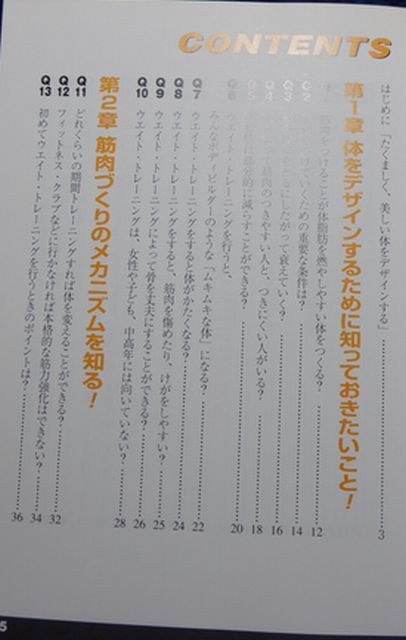 CONTENTS
はじめに 「たくましく、美しい体をデザインする」 3
第1章 体をデザインするために知っておきたいこと!
筋肉をつけることが体脂肪を燃やしやすい体をつくる? 12
Q2 いくための重要な条件は? 14
Q3 とるにしたがって衰えていく? 16
Q4 筋肉のつきやすい人と、つきにくい人がいる? 18
Q5 部分的に減らすことができる?
Q6 ウエイト・トレーニングを行うと、 20
Q7 みんなボディビルダーのような「ムキムキな体」になる? 22
Q8 ウエイト・トレーニングをすると体がかたくなる? 24
Q9 ウエイト・トレーニングをすると、筋肉を傷めたり、けがをしやすい? 25
Q10 ウエイト・トレーニングによって骨を丈夫にすることができる? 26
ウエイト・トレーニングは、女性や子ども、中高年には向いていない? 28
第2章 筋肉づくりのメカニズムを知る!
Q11 どれくらいの期間トレーニングすれば体を変えることができる? 32
Q12 フィットネス・クラブなどに行かなければ本格的な筋力強化はできない? 34
Q13 初めてウエイト・トレーニングを行うときのポイントは? 36
5